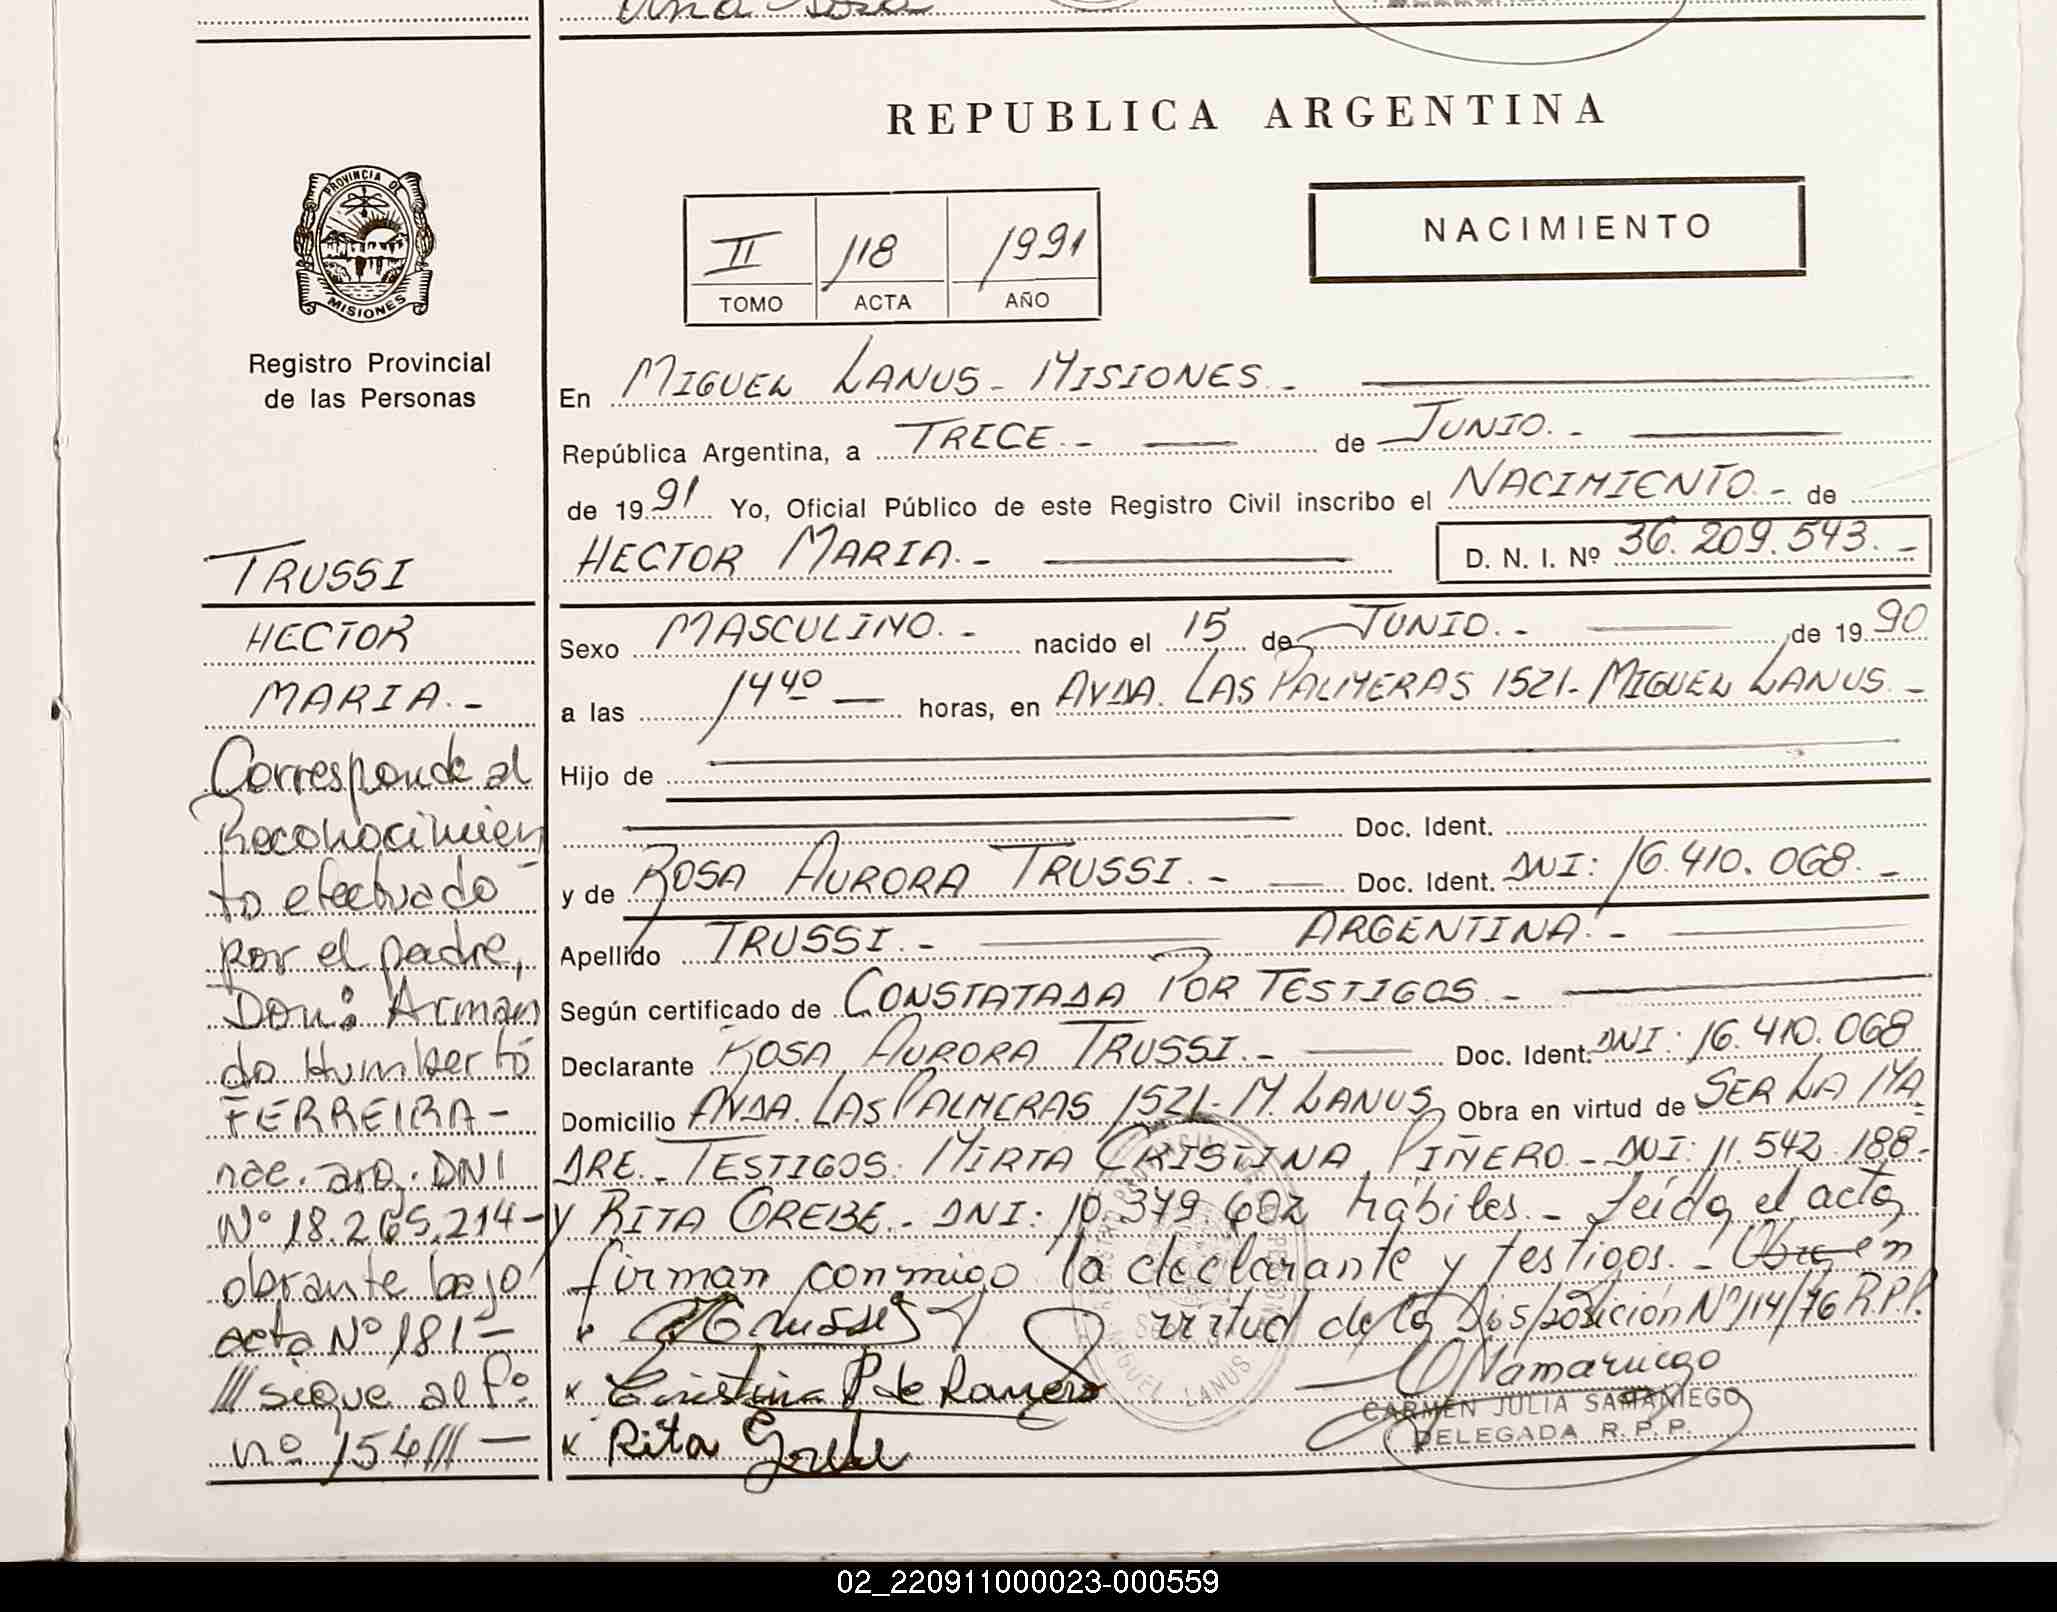 REPUBLICA ARGENTINA
PROVINCIA DE
MISIONES
Registro Provincial
de las Personas
II 118 1991
TOMO ACTA AÑO
NACIMIENTO
En MIGUEL LANUS - MISIONES -
República Argentina, a TRECE.- de JUNIO.-
de 1991 Yo, Oficial Público de este Registro Civil inscribo el NACIMIENTO.- de
HECTOR MARIA.- D. N. I. Nº 36.209.543.-
Sexo MASCULINO.- nacido el 15 de JUNIO.- de 1990
a las 14 40 horas, en AVDA. LAS PALMERAS 1521- MIGUEL LANUS.-
Hijo de
Doc. Ident.
y de ROSA AURORA TRUSSI.- Doc. Ident. DNI: 16.410.068.-
Apellido TRUSSI.- ARGENTINA.-
Según certificado de CONSTATADA POR TESTIGOS.-
Declarante ROSA AURORA TRUSSI.- Doc. Ident. DNI: 16.410.068
Domicilio AVDA. LAS PALMERAS 1521- M. LANUS Obra en virtud de SER LA MA
DRE.- TESTIGOS: MIRTA CRISTINA PIÑERO - DNI: 11.542.188-
y RITA GREBE.- DNI: 10.379.602 hábiles.- Leída el acta
firman conmigo la declarante y testigos.- Obra en
virtud de la Disposición Nº 114/76 R.P.P.
x Cristina P de Romero
x Rita Grebe
CARMEN JULIA SAMANIEGO
DELEGADA R. P. P.
MIGUEL LANUS
TRUSSI
HECTOR
MARIA.-
Corresponde al
Reconocimien
to efectuado
por el padre,
Don: Arman
do Humberto
FERREIRA-
nac. arg. DNI
Nº 18.265.214-
obrante bajo
acta Nº 181-
/// sigue al fº
nº 154 /// -
02_220911000023-000559